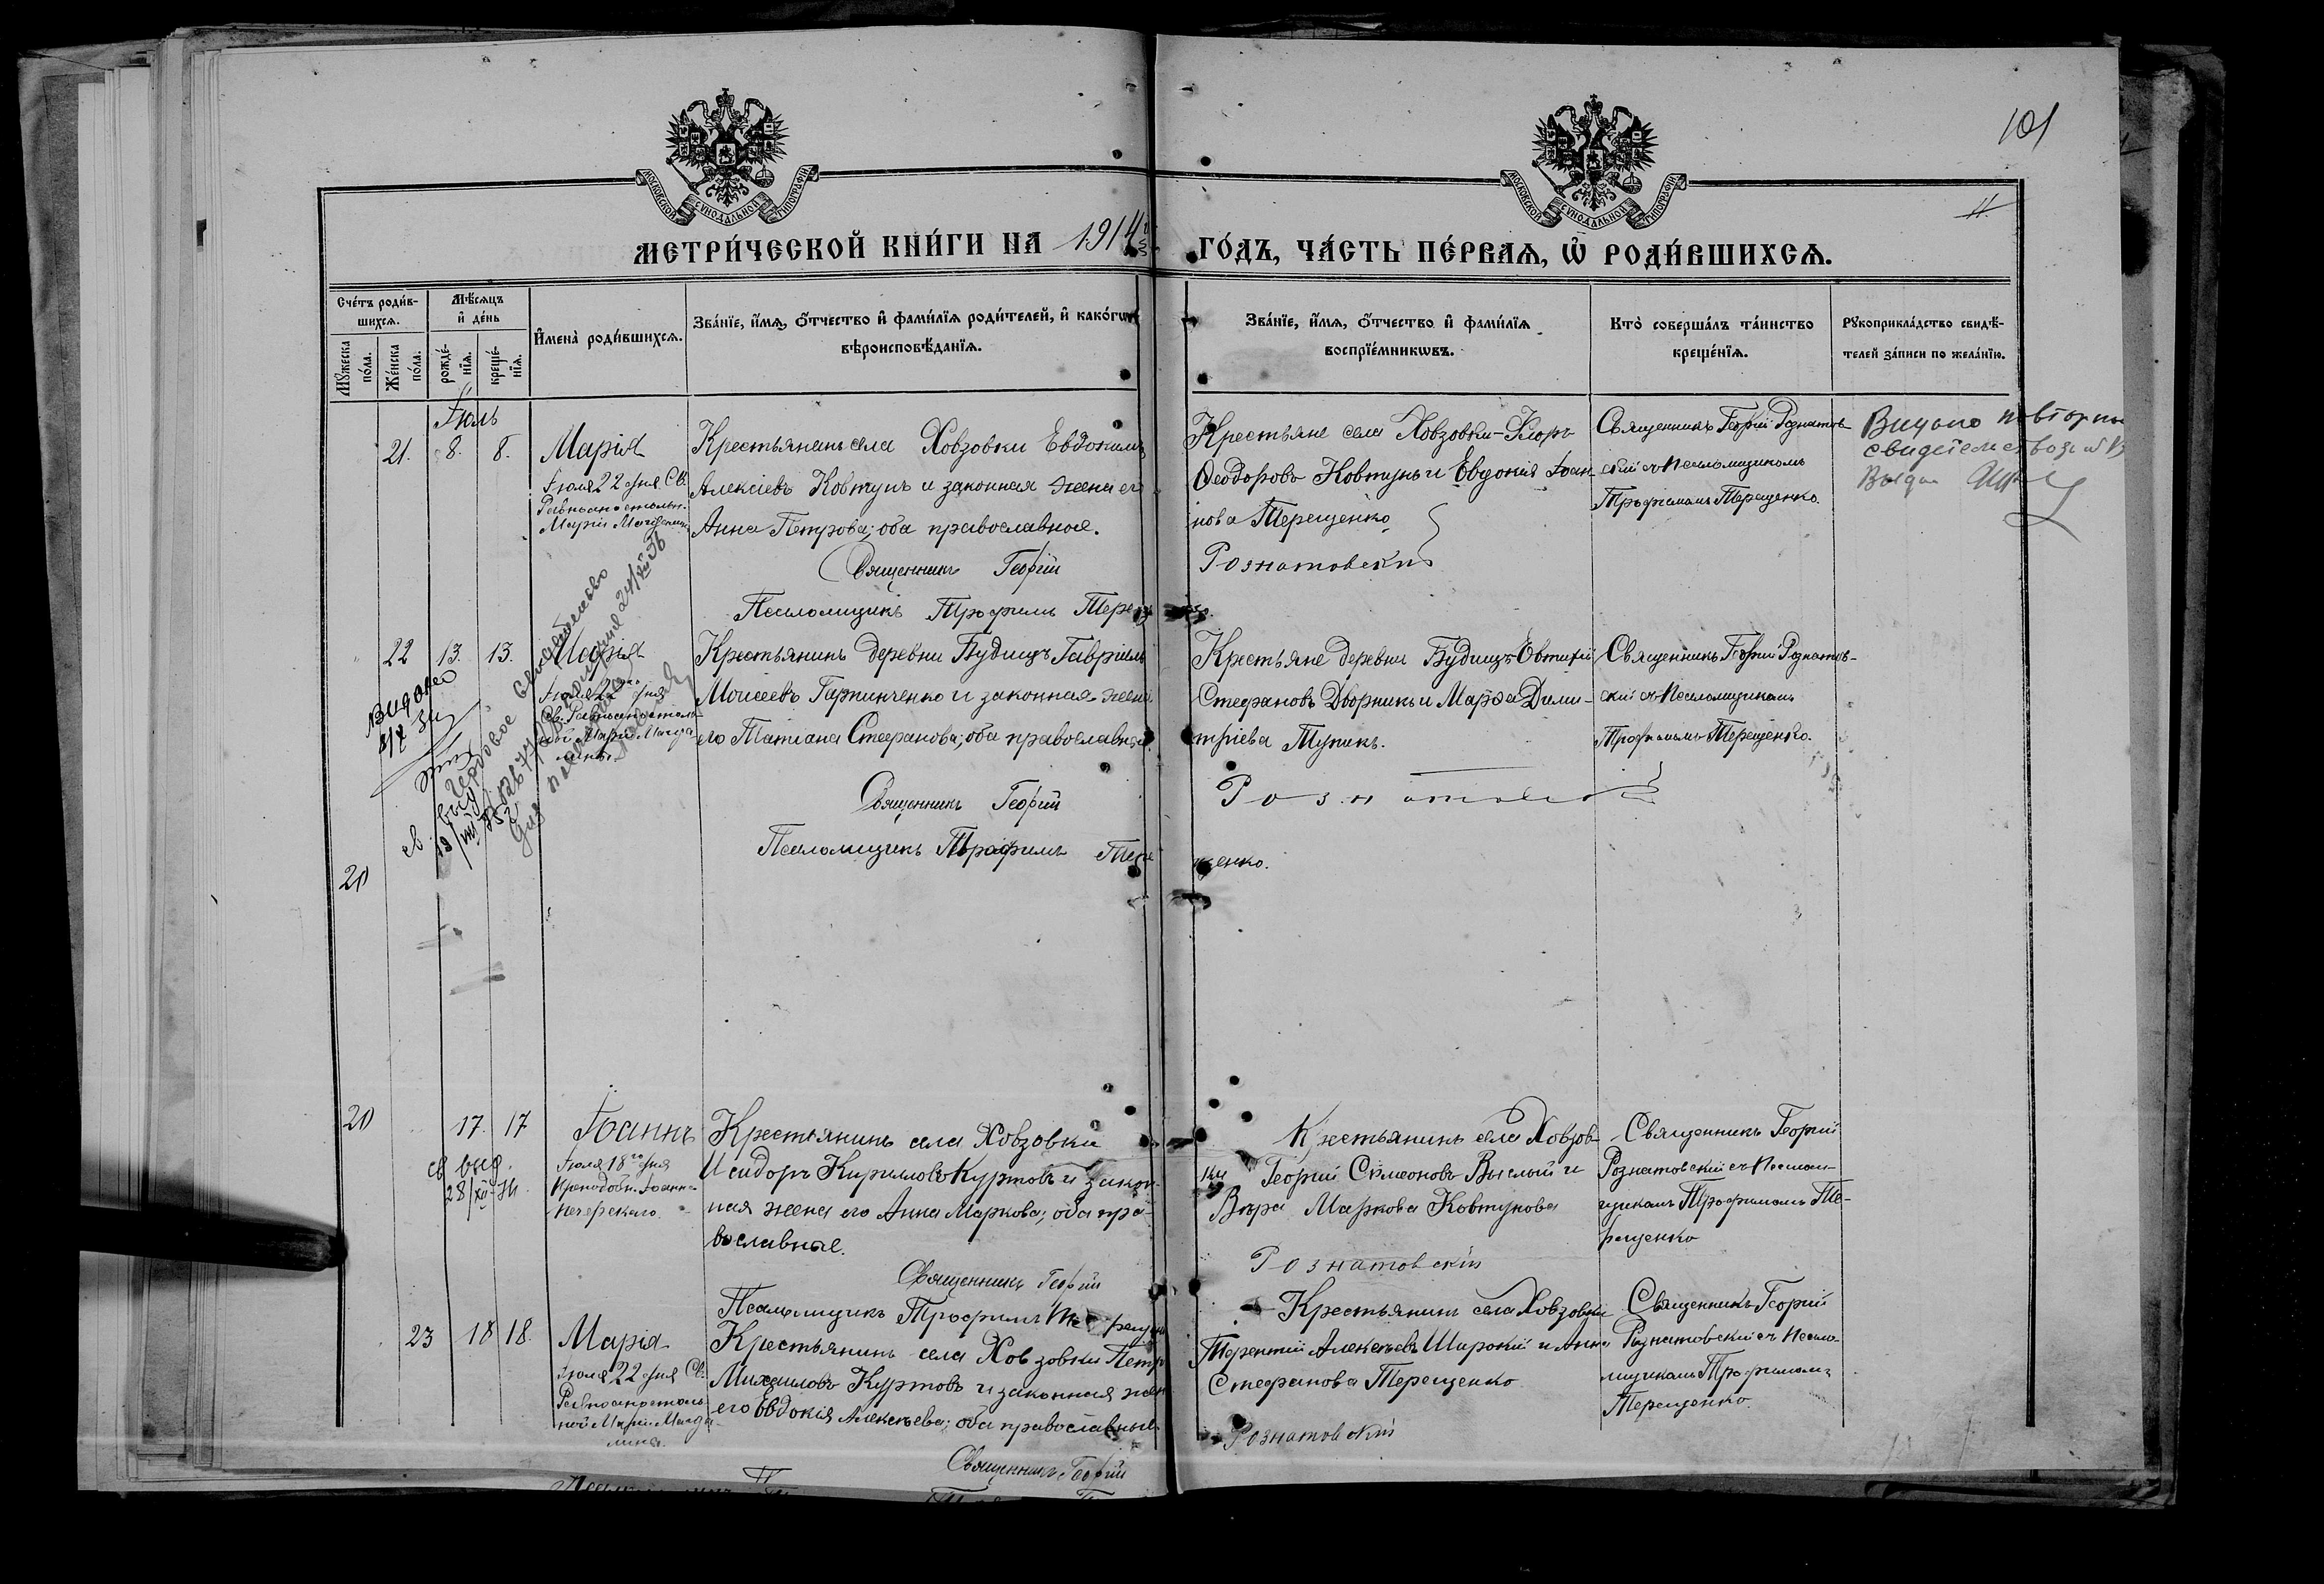 101
11.
МОСКОВСКОЙ СѴНОДАЛЬНОЙ ТИПОГРАФІИ
МОСКОВСКОЙ СѴНОДАЛЬНОЙ ТИПОГРАФІИ
МЕТРИ́ЧЕСКОЙ КНИ́ГИ НА 1914
ГО́ДЪ, ЧА́СТЬ ПЕ́РВАЯ, Ѡ҆ РОДИ́ВШИХСЯ.
Сче́тъ роди́в-
шихся.
Мꙋжеска по́ла.
Же́нска по́ла.
Мѣ́сяцъ
и҆ де́нь
рожде́-
нїя.
креще́-
нїя.
И҆мена̀ роди́вшихся.
Зва́нїе, и҆́мя, ѻ҆́тчество и҆ фамѝлїя роди́телей, и҆ како́гѡ
вѣроисповѣ́данїя.
Зва́нїе, и҆́мя, ѻ҆́тчество и҆ фами́лїя
воспрїе́мникѡвъ.
Кто̀ соверша́лъ та́инство
креще́нїя.
Рꙋкоприкла́дство свидѣ́-
телей за́писи по жела́нїю.
Іюль
21. 8. 8. Марія
Іюля 22 дня Св.
Равноапостольн.
Маріи
Крестьянинъ села Ховзовки Евдокимъ
Алексіевъ Ковтунъ и законная жена его
Анна Петрова; оба православные.
Священникъ Георгій
Псаломщикъ Трофимъ Терещ
Крестьяне села Ховзовки-
Ѳеодоровъ Ковтунъ и Евдокія Іоан-
нова Терещенко
Рознатовскій
Священникъ Георгій Рознатов-
скій съ Псаломщикомъ
Трофимомъ Терещенко.
Видано повторно
свидетельство
22 13. 13. Марія
Іюля 22 дня
Св. Равноапостоль-
ной Маріи Магда-
лины.
Крестьянинъ деревни Будищъ Гавріилъ
Моисеевъ и законная жена
его Татіана Стефанова; оба православные
Священникъ Георгій
Псаломщикъ Трофимъ Тере
Крестьяне деревни Будищъ Евтихій
Стефановъ Дворникъ и Марѳа Дими-
тріева Тупикъ.
Рознатовскій
щенко.
Священникъ Георгій Рознатов-
скій съ Псаломщикомъ
Трофимомъ Терещенко.
20
20 17. 17 Іоаннъ
св выд.
28/XII-34
Іюля 18го дня
Преподобн. Іоанна
Печерскаго
Крестьянинъ села Ховзовки
Исидоръ Кирилловъ Куртовъ и закон-
ная жена его Анна Маркова; оба пра-
вославные.
Священникъ Георгій
Псаломщикъ Трофимъ Терещен
Крестьянинъ села Ховзов-
ки Георгій Симеоновъ и
Вѣра Маркова Ковтунова
Рознатовскій
Священникъ Георгій
Рознатовскій съ Псалом-
щикомъ Трофимомъ Те-
рещенко
23 18 18. Марія
Іюля 22 дня Св.
Равноапостоль-
ной Маріи Магда-
лины.
Крестьянинъ села Ховзовки Петръ
Михаиловъ Куртовъ и законная жена
его Евдокія Алексѣева; оба православные
Священникъ Георгій
Крестьянинъ села Ховзовки
Терентій Алексѣевъ Широкій и Анна
Стефанова Терещенко
Рознатовскій
Священникъ Георгій
Рознатовскій съ Псало-
мщикомъ Трофимомъ
Терещенко.